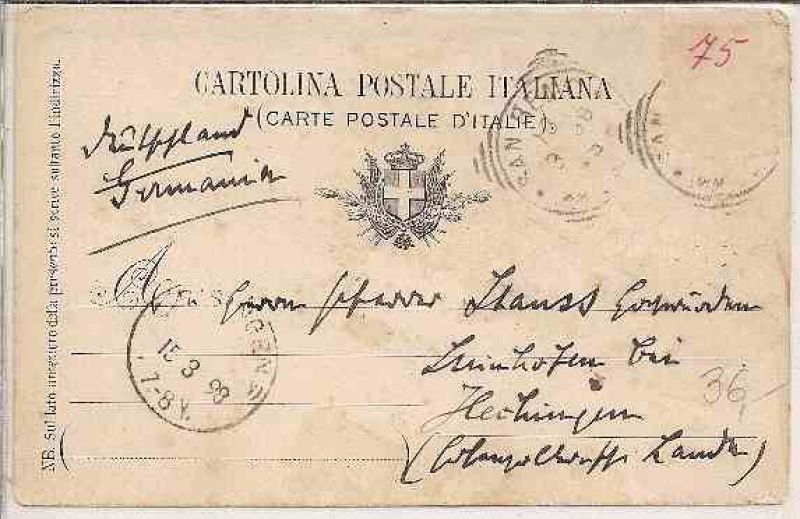 75
CARTOLINA POSTALE ITALIANA
(CARTE POSTALE D'ITALIE)
Deutschland
Germania
SAN
AN
A
Herrn Pfarrer Stauss Hochwürden
bei
Hechingen
(Hohenzollerische Lande)
15 3 98
7-8V.
36
NB. Sul lato anteriore della presente si scrive soltanto l'indirizzo.